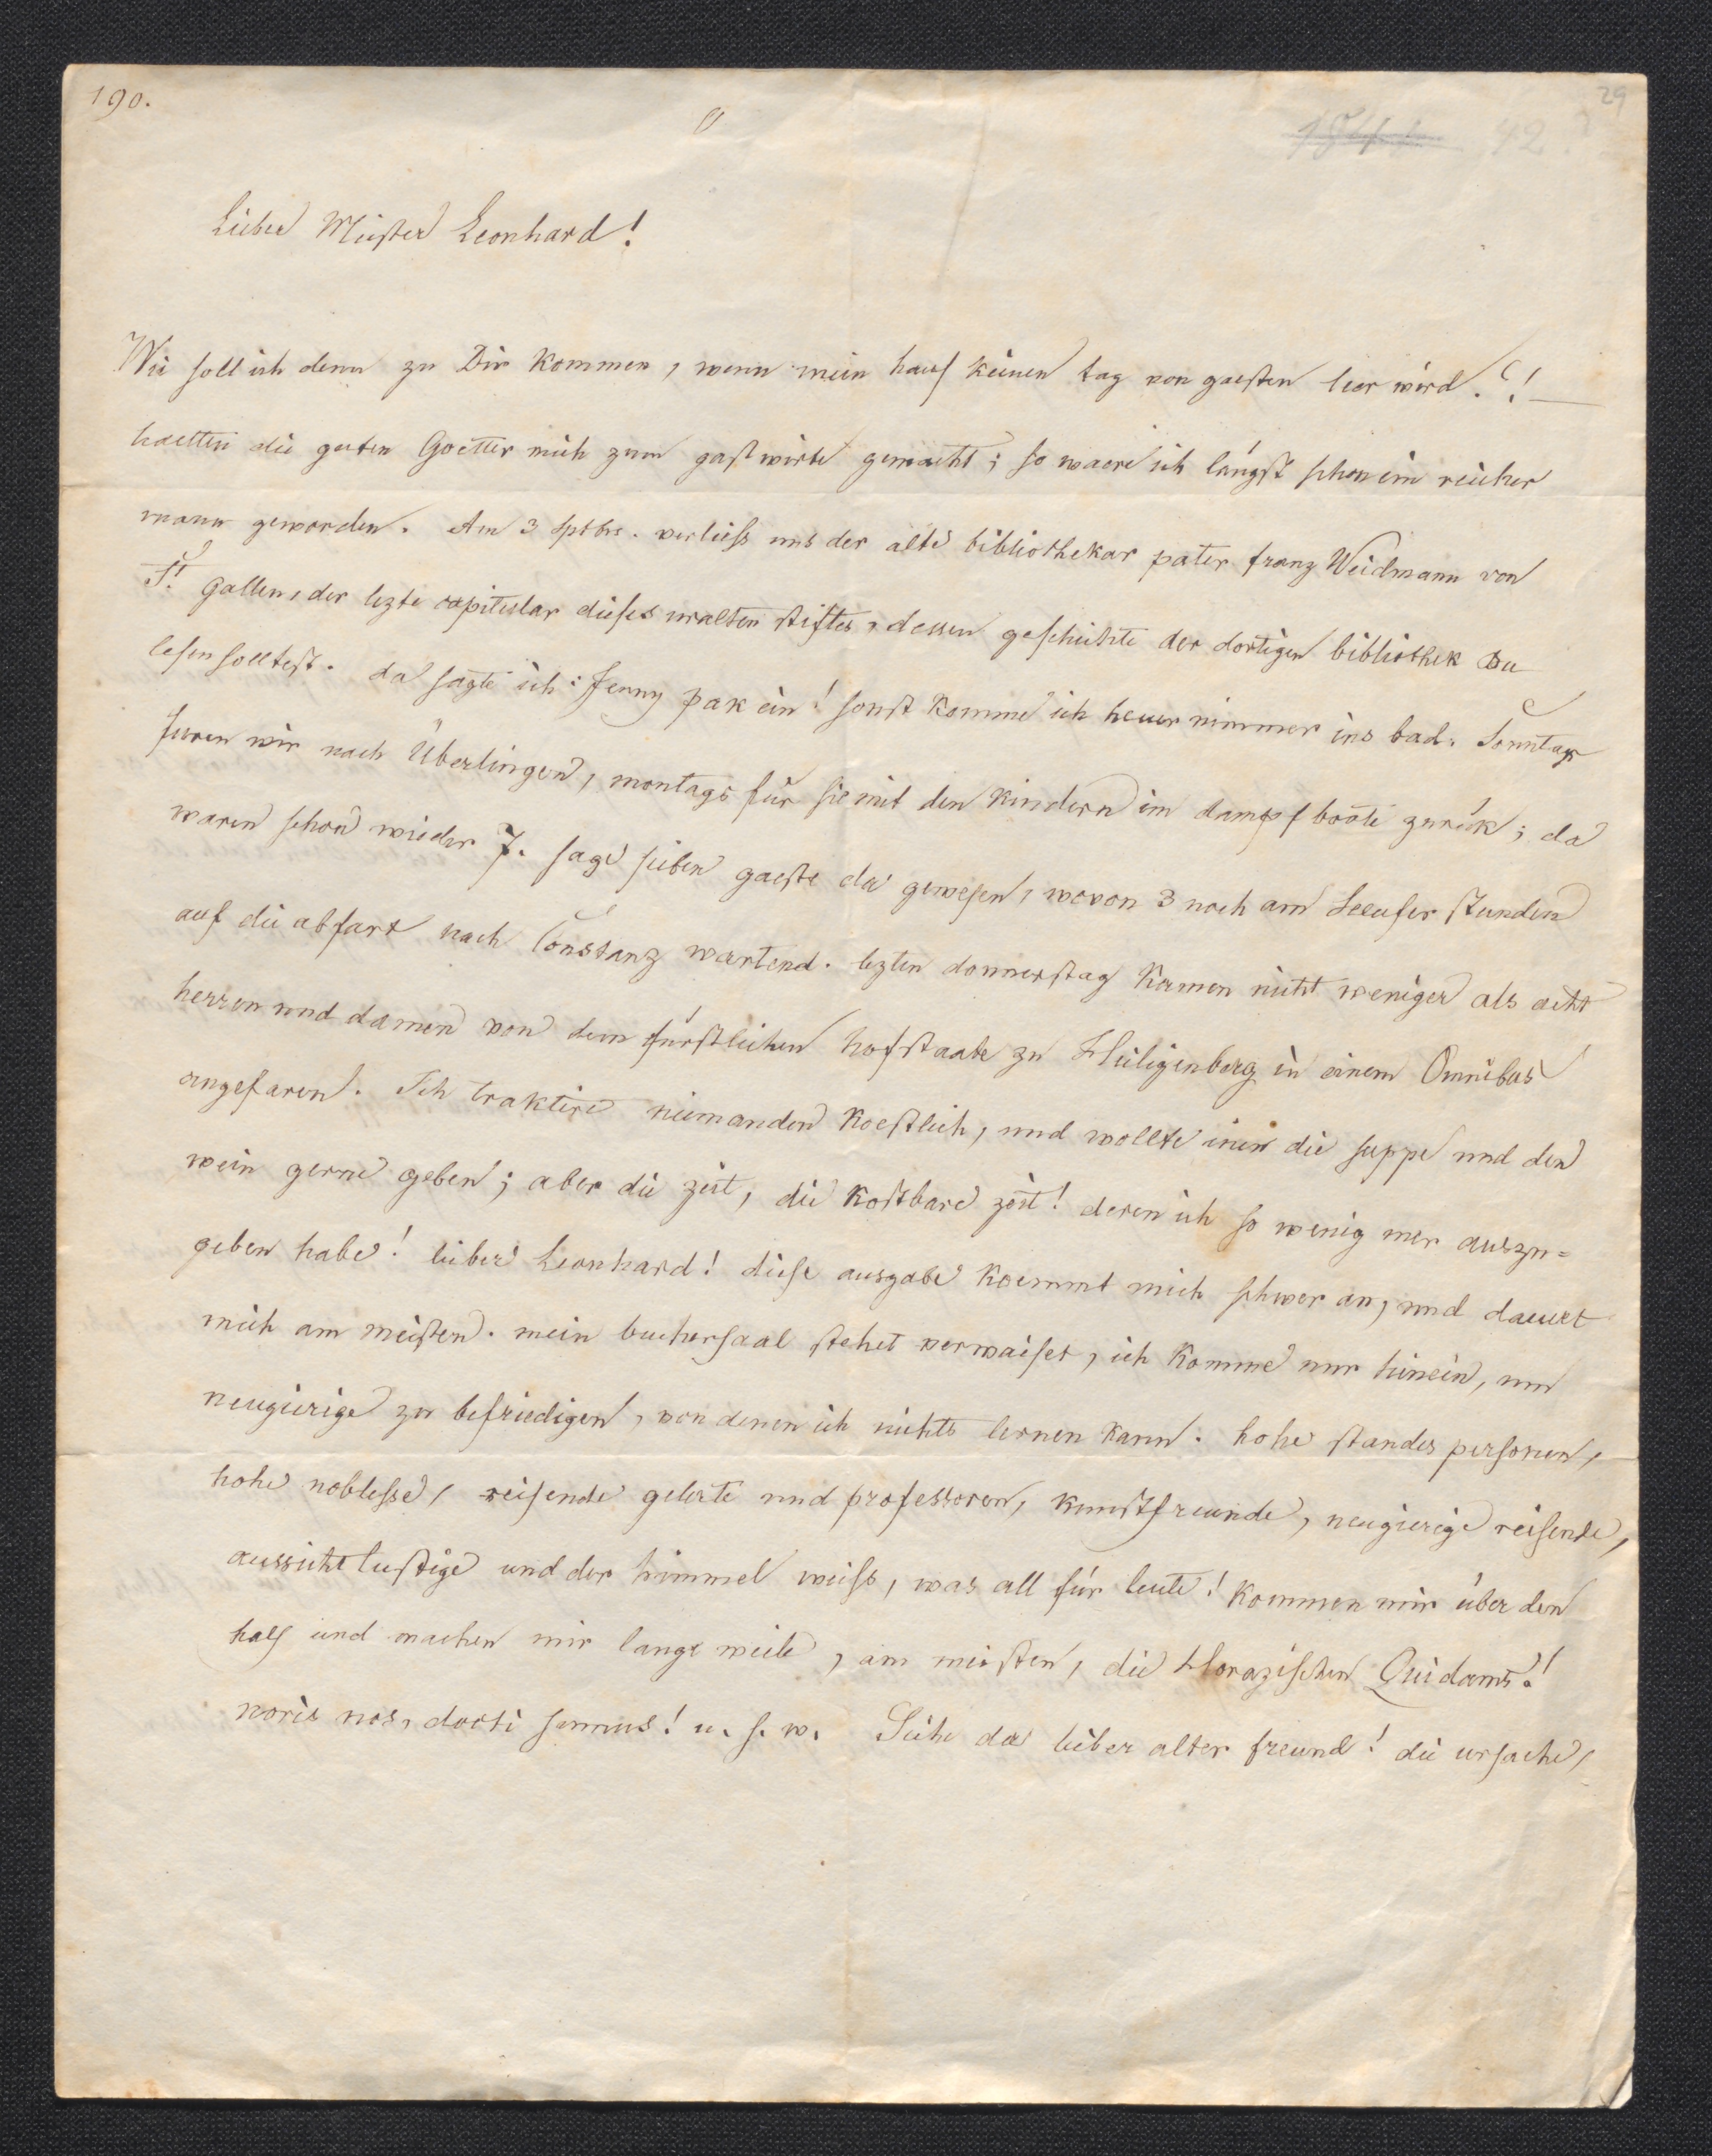 190.
29
1841. 42?
Lieber Meister Leonhard!
Wie soll ich denn zu Dir kommen, wenn mein haus keinen tag von gaesten leer wird.?!—
haetten die guten Goetter mich zum gastwirte gemacht; so waere ich längst schon ein reicher
mann geworden. Am 3 Sptbr. verliess uns der alte bibliothekar pater franz Weidmann von
St. Gallen, der lezte capitular dieses uralten stiftes, dessen geschichte der dortigen bibliothek Du
lesen solltest. da sagte ich: Jenny pak ein! sonst komme ich heuer nimmer ins bad. Sonntags
furen wir nach Überlingen, montags fur sie mit den kindern im dampfboote zurük; da
waren schon wieder 7. sage sieben gaeste da gewesen, wovon 3 noch am Seeufer stunden
auf die abfart nach Constanz wartend. lezten donnerstag kamen nicht weniger als acht
herren und damen von dem fürstlichen hofstaate zu Heiligenberg in einem Omnibus
angefaren. Ich traktire niemanden koestlich, und wollte inen die suppe und den
wein gerne geben; aber die zeit, die kostbare zeit! deren ich so wenig mer auszu=
geben habe! lieber Leonhard! diese ausgabe koemmt mich schwer an, und dauert
mich am meisten. mein buchersaal stehet verwaiset, ich komme nur hinein, um
neugierige zu befriedigen, von denen ich nichts lernen kann. hohe standes personen,
hohe noblesse, reisende gelerte und professoren, kunstfreunde, neugierige reisende,
aussichtlustige und der himmel weiss, was all für leute! kommen mir über den
hals und machen mir lange weile, am meisten, die Horazischen Quidams!
noris nos, docti sumus! u. s. w. Siehe da lieber alter freund! die ursache,